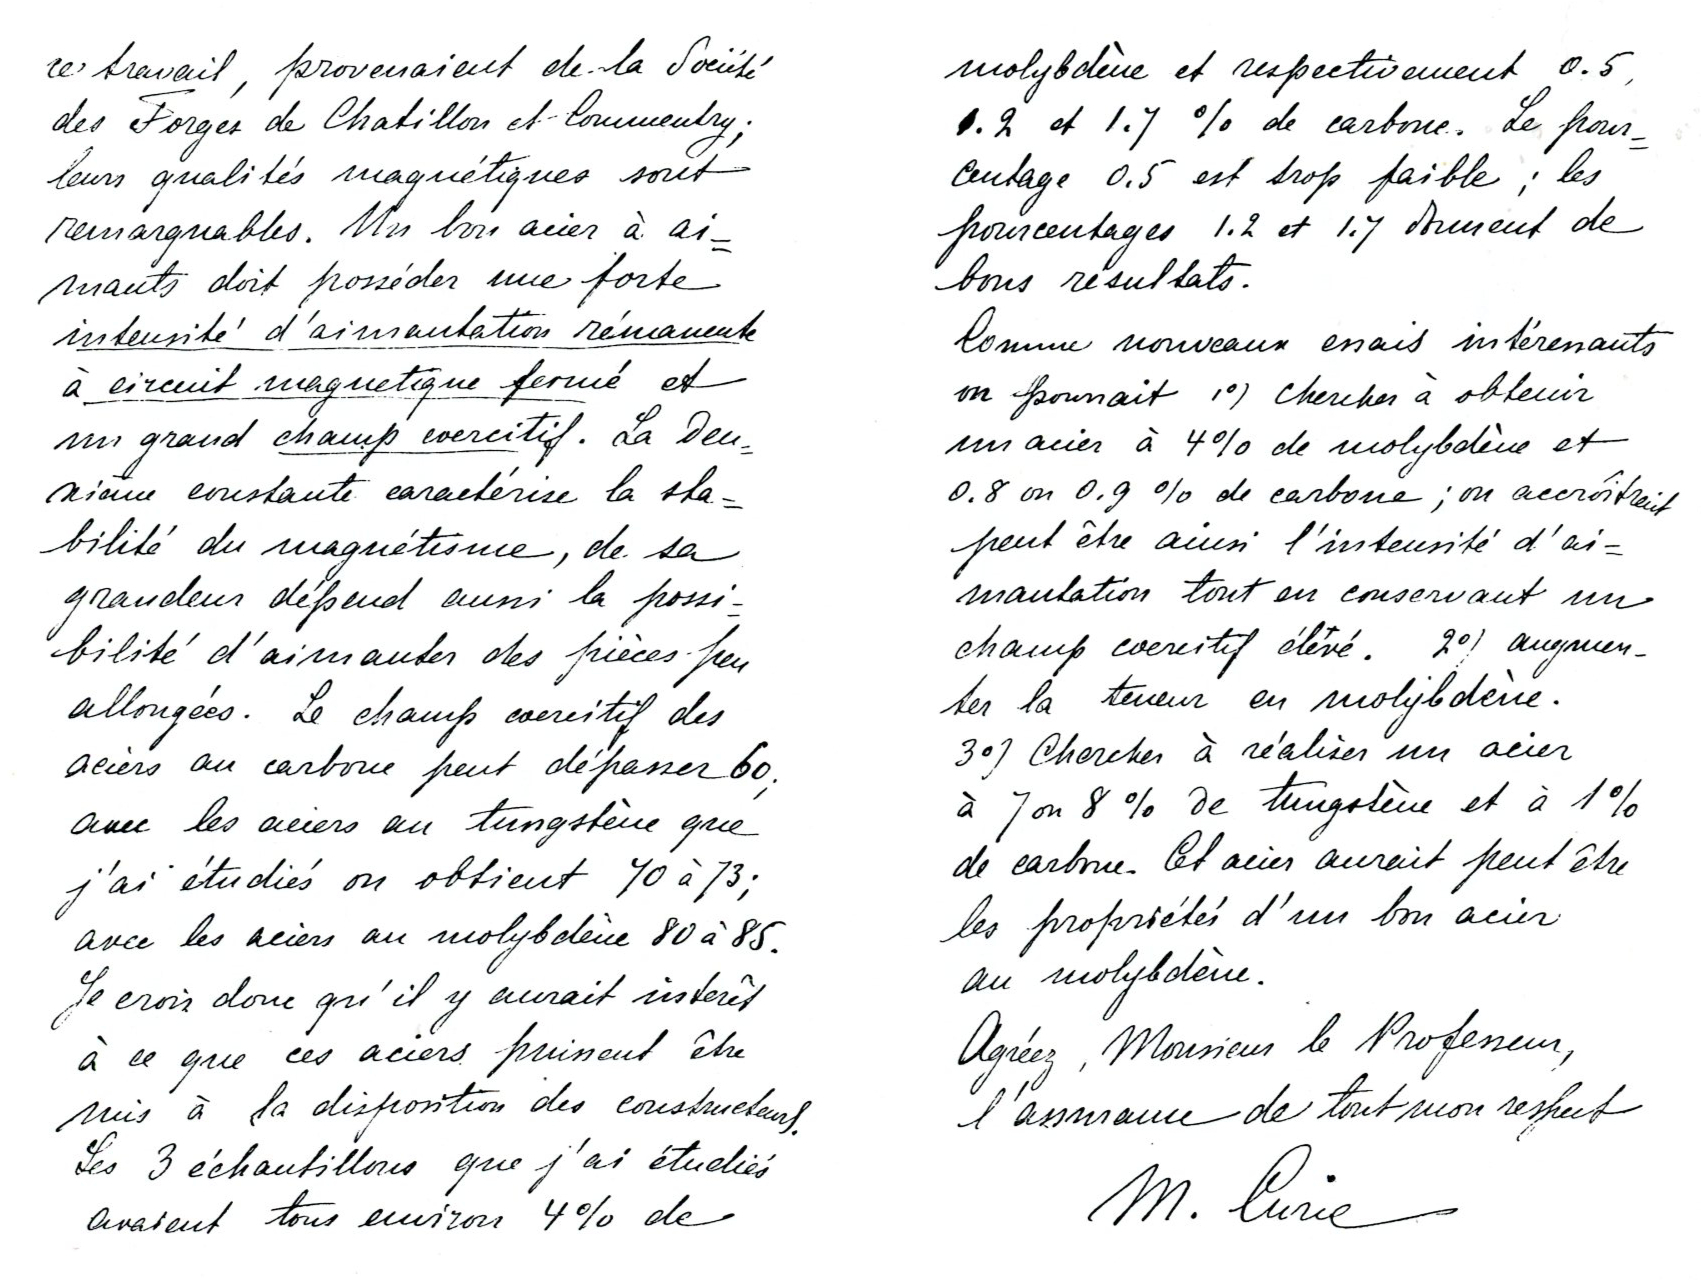 ce travail, provenaient de la Société
des Forges de Chatillon et Commentry;
leurs qualités magnétiques sont
remarquables. Un bon acier à ai=
mants doit posséder une forte
intensité d'aimantation rémanente
à circuit magnetique fermé et
un grand champ coercitif. La deu=
xième constante caractérise la sta=
bilité du magnétisme, de sa
grandeur dépend aussi la possi=
bilité d'aimanter des pièces peu
allongées. Le champ coercitif des
aciers au carbone peut dépasser 60;
avec les aciers au tungstène que
j'ai étudiés on obtient 70 à 73;
avec les aciers au molybdène 80 à 85.
Je crois donc qu'il y aurait intérêt
à ce que ces aciers puissent être
mis à la disposition des constructeurs.
Les 3 échantillons que j'ai étudiés
avaient tous environ 4% de
molybdène et respectivement 0.5,
1.2 et 1.7 % de carbone. Le pour=
centage 0.5 est trop faible; les
pourcentages 1.2 et 1.7 donnent de
bons résultats.
Comme nouveaux essais intéressants
on pourrait 1º) Chercher à obtenir
un acier à 4% de molybdène et
0.8 ou 0.9 % de carbone; on accroîtrait
peut être ainsi l'intensité d'ai=
mantation tout en conservant un
champ coercitif élévé. 2º) augmen-
ter la teneur en molybdène.
3º) Chercher à réaliser un acier
à 7 ou 8 % de tungstène et à 1%
de carbone. Cet acier aurait peut être
les propriétés d'un bon acier
au molybdène.
Agréez, Monsieur le Professeur,
l'assurance de tout mon respect
M. Curie